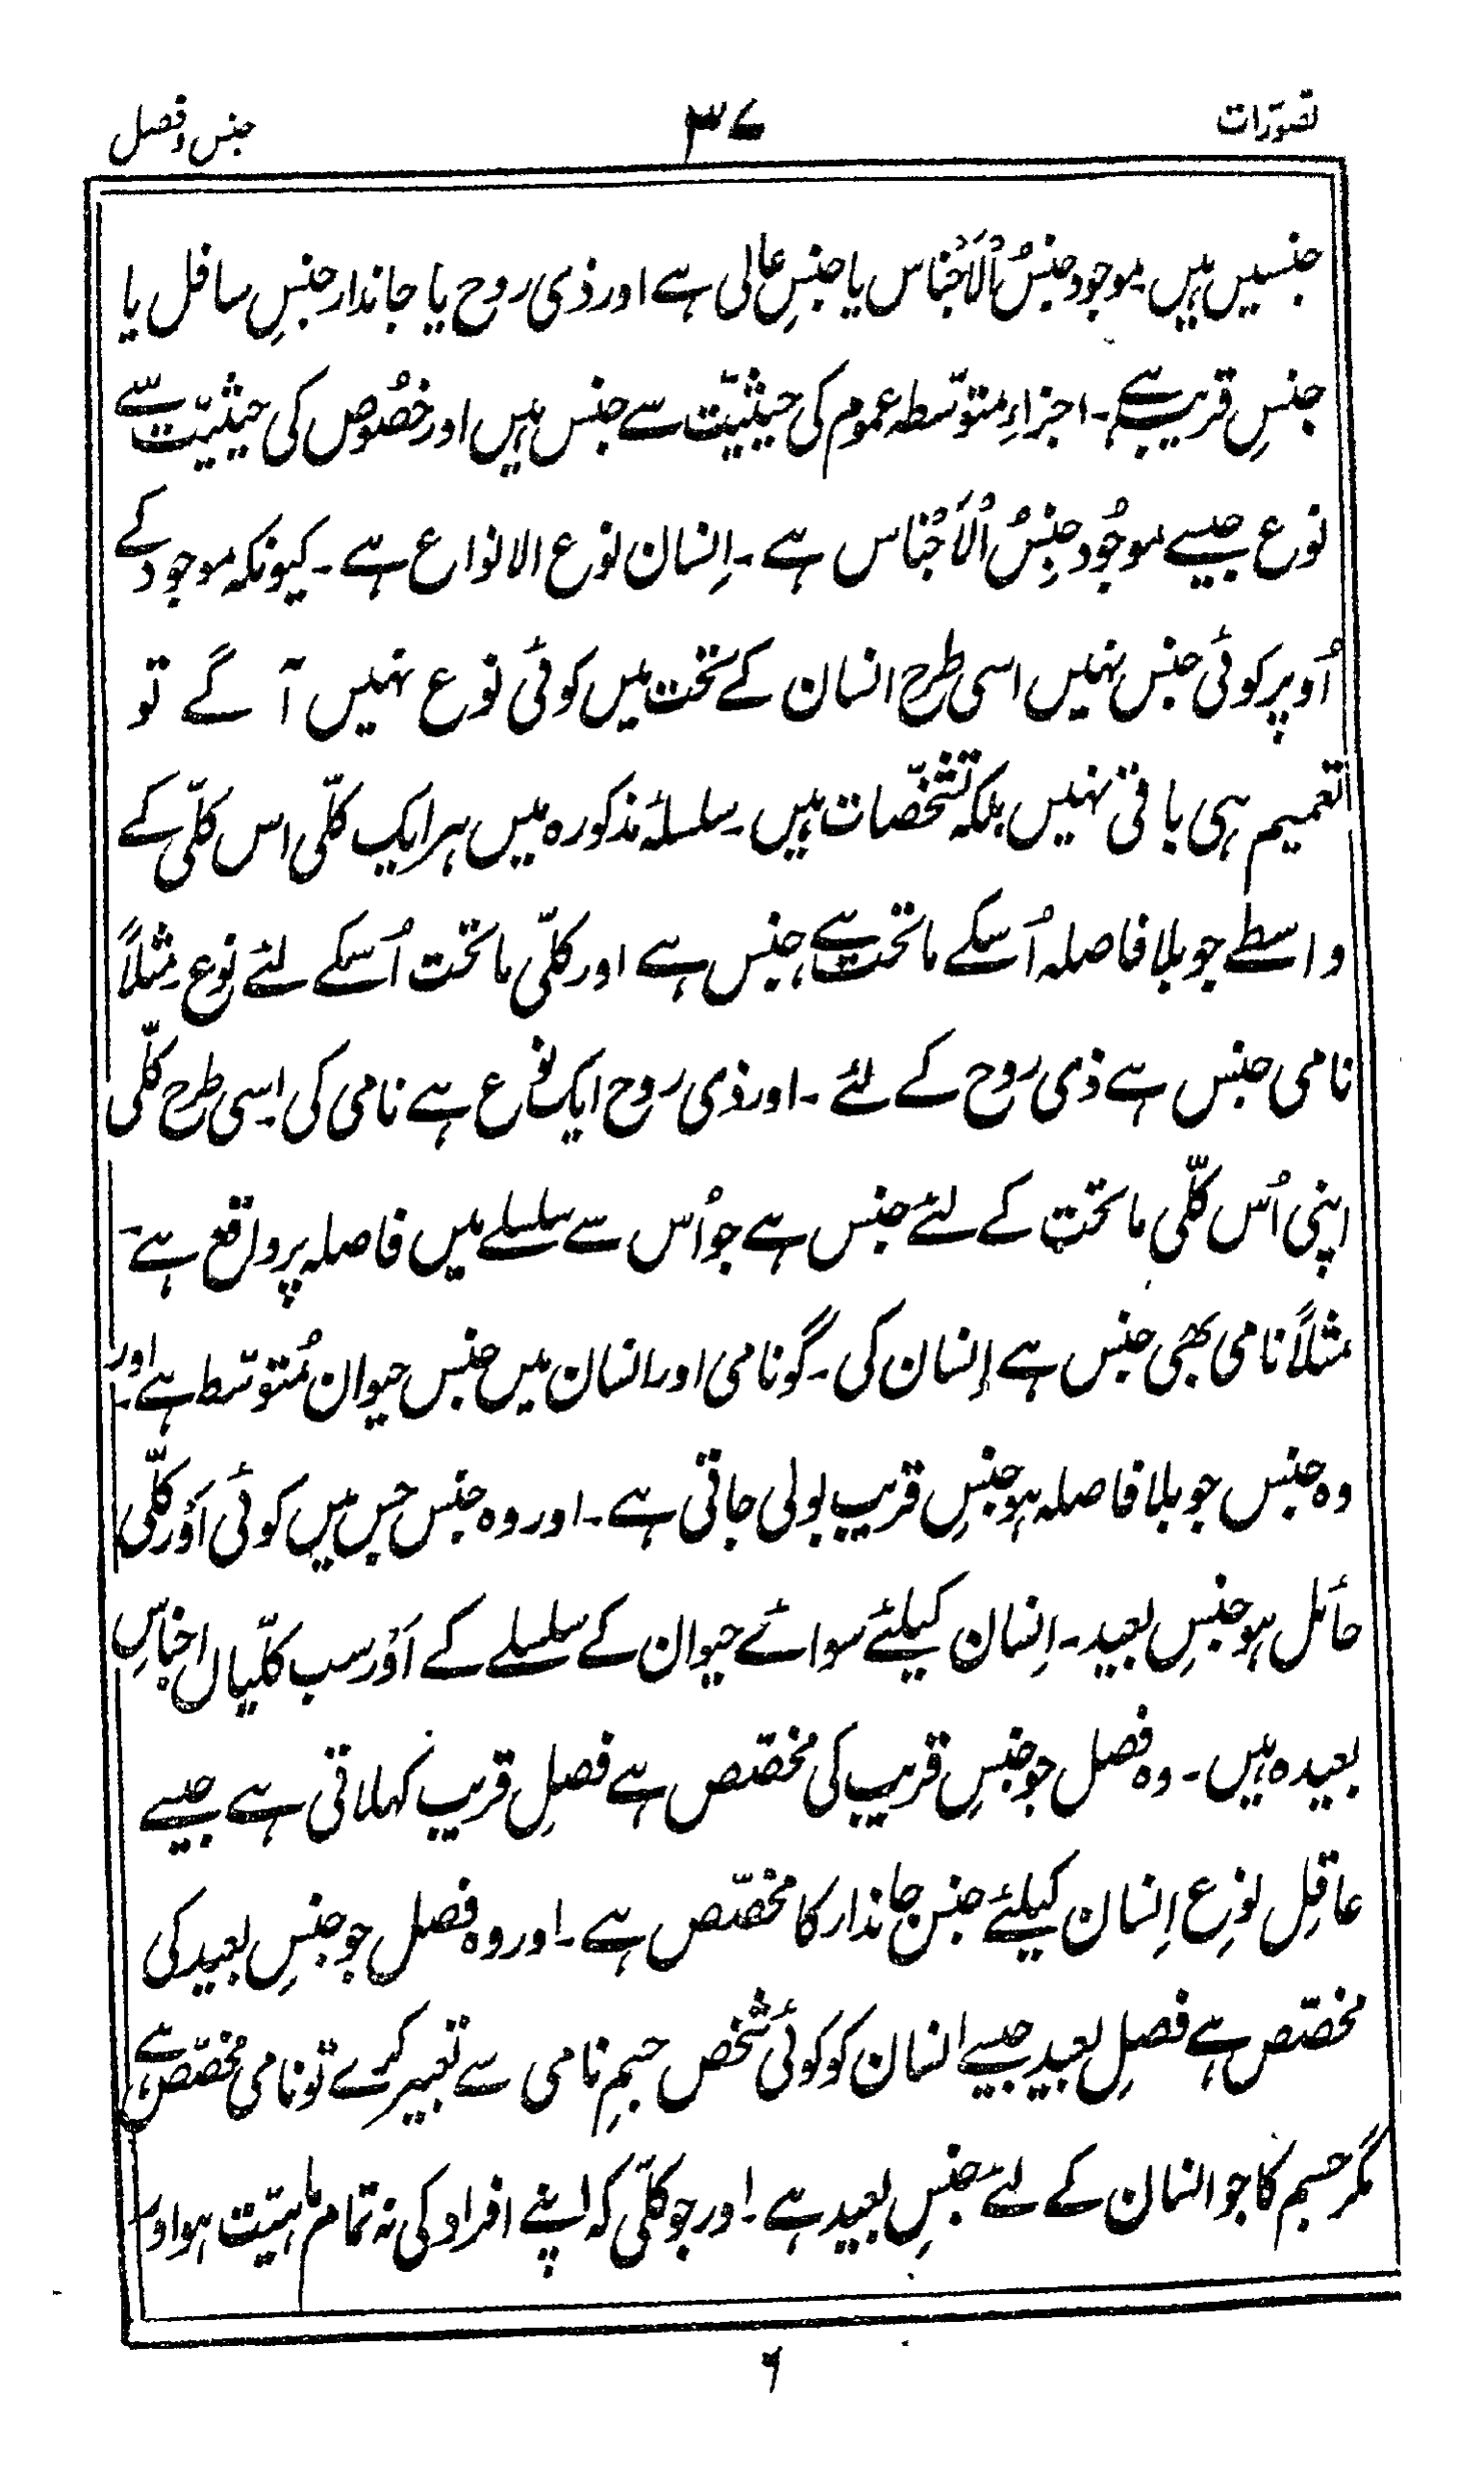 تصوّرات ۳۷ جنس و فصل
جنسیں ہیں۔ موجود جنسُ الْاَجْناس یا جنسِ عالی ہے اور ذی روح یا جاندار جنسِ سافل یا
جنسِ قریب ہے۔ اجزاءِ متوسّطہ عموم کی حیثیّت سے جنس ہیں اور خصُوص کی حیثیّت سے
نوع جیسے موجُود جِنسُ الْاَجْناس ہے۔ اِنسان نوع الانواع ہے۔ کیونکہ موجود کے
اُوپر کوئی جنس نہیں اسی طرح انسان کے تخت میں کوئی نوع نہیں آگے تو
تعمیم ہی باقی نہیں بلکہ تشخّصات ہیں۔ سلسلۂ مذکورہ میں ہر ایک کلّی اس کلّی کے
واسطے جو بلا فاصلہ اُسکے ماتحت ہے جنس ہے اور کلّی ماتحت اُسکے لئے نوع۔ مثلاً
نامی جنس ہے ذی روح کے لئے۔ اور ذی روح ایک نوع ہے نامی کی۔ اِسی طرح کلّی
اپنی اُس کلّی ماتحت کے لئے جنس ہے جو اُس سے سلسلے میں فاصلہ پر واقع ہے۔
مثلاً نامی بھی جنس ہے اِنسان کی۔ گو نامی اور انسان میں جنس حیوان مُتوسّط ہے۔ اور
وہ جنس جو بلا فاصلہ ہو جنسِ قریب بولی جاتی ہے۔ اور وہ جنس جس میں کوئی اَوْر کلّی
حائل ہو جنسِ بعید۔ اِنسان کیلئے سوائے حیوان کے سلسلے کے اَوْر سب کلّیاں اجناسِ
بعیدہ ہیں۔ وہ فصل جو جنسِ قریب کی مخصّص ہے فصلِ قریب کہلاتی ہے جیسے
عاقِل نوعِ اِنسان کیلئے جنس جاندار کا مخصّص ہے۔ اور وہ فصل جو جنسِ بعید کی
مخصّص ہے فصلِ بعید جیسے انسان کو کوئی شخص جسمِ نامی سے تعبیر کرے تو نامی مُخصّص ہے
مگر جسم کا جو انسان کے لئے جنسِ بعید ہے۔ اور جو کلّی کہ اپنے افراد کی نہ تمام ماہیّت ہو اور
۶